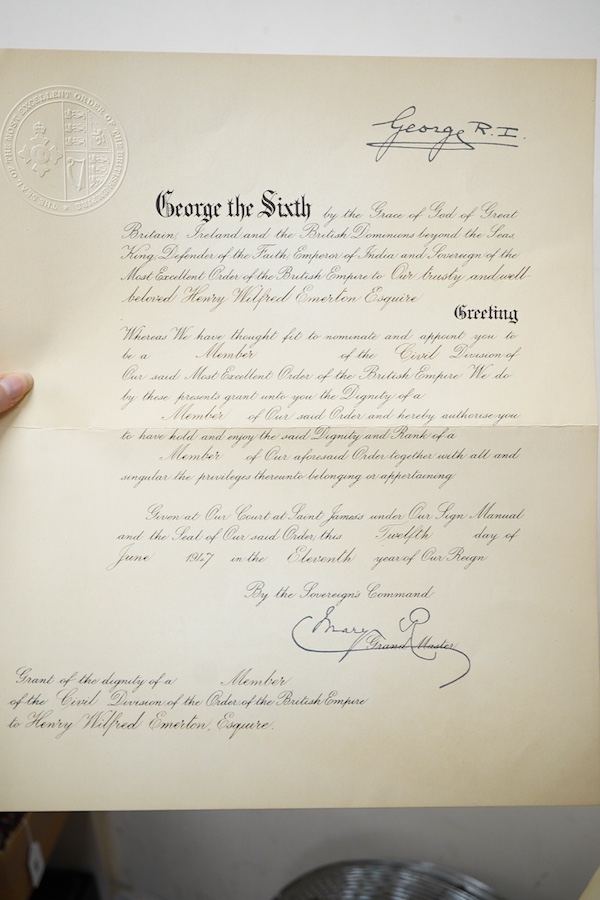 THE SEAL OF THE MOST EXCELLENT ORDER OF THE BRITISH EMPIRE
George R.I.
George the Sixth by the Grace of God of Great
Britain, Ireland and the British Dominions beyond the Seas,
King, Defender of the Faith, Emperor of India and Sovereign of the
Most Excellent Order of the British Empire to Our trusty and well
beloved Henry Wilfred Emerton Esquire
Greeting
Whereas We have thought fit to nominate and appoint you to
be a Member of the Civil Division of
Our said Most Excellent Order of the British Empire We do
by these presents grant unto you the Dignity of a
Member of Our said Order and hereby authorise you
to have hold and enjoy the said Dignity and Rank of a
Member of Our aforesaid Order together with all and
singular the privileges thereunto belonging or appertaining
Given at Our Court at Saint James's under Our Sign Manual
and the Seal of Our said Order, this Twelfth day of
June 1947 in the Eleventh year of Our Reign
By the Sovereign's Command
Mary R
Grand Master
Grant of the dignity of a Member
of the Civil Division of the Order of the British Empire
to Henry Wilfred Emerton, Esquire.